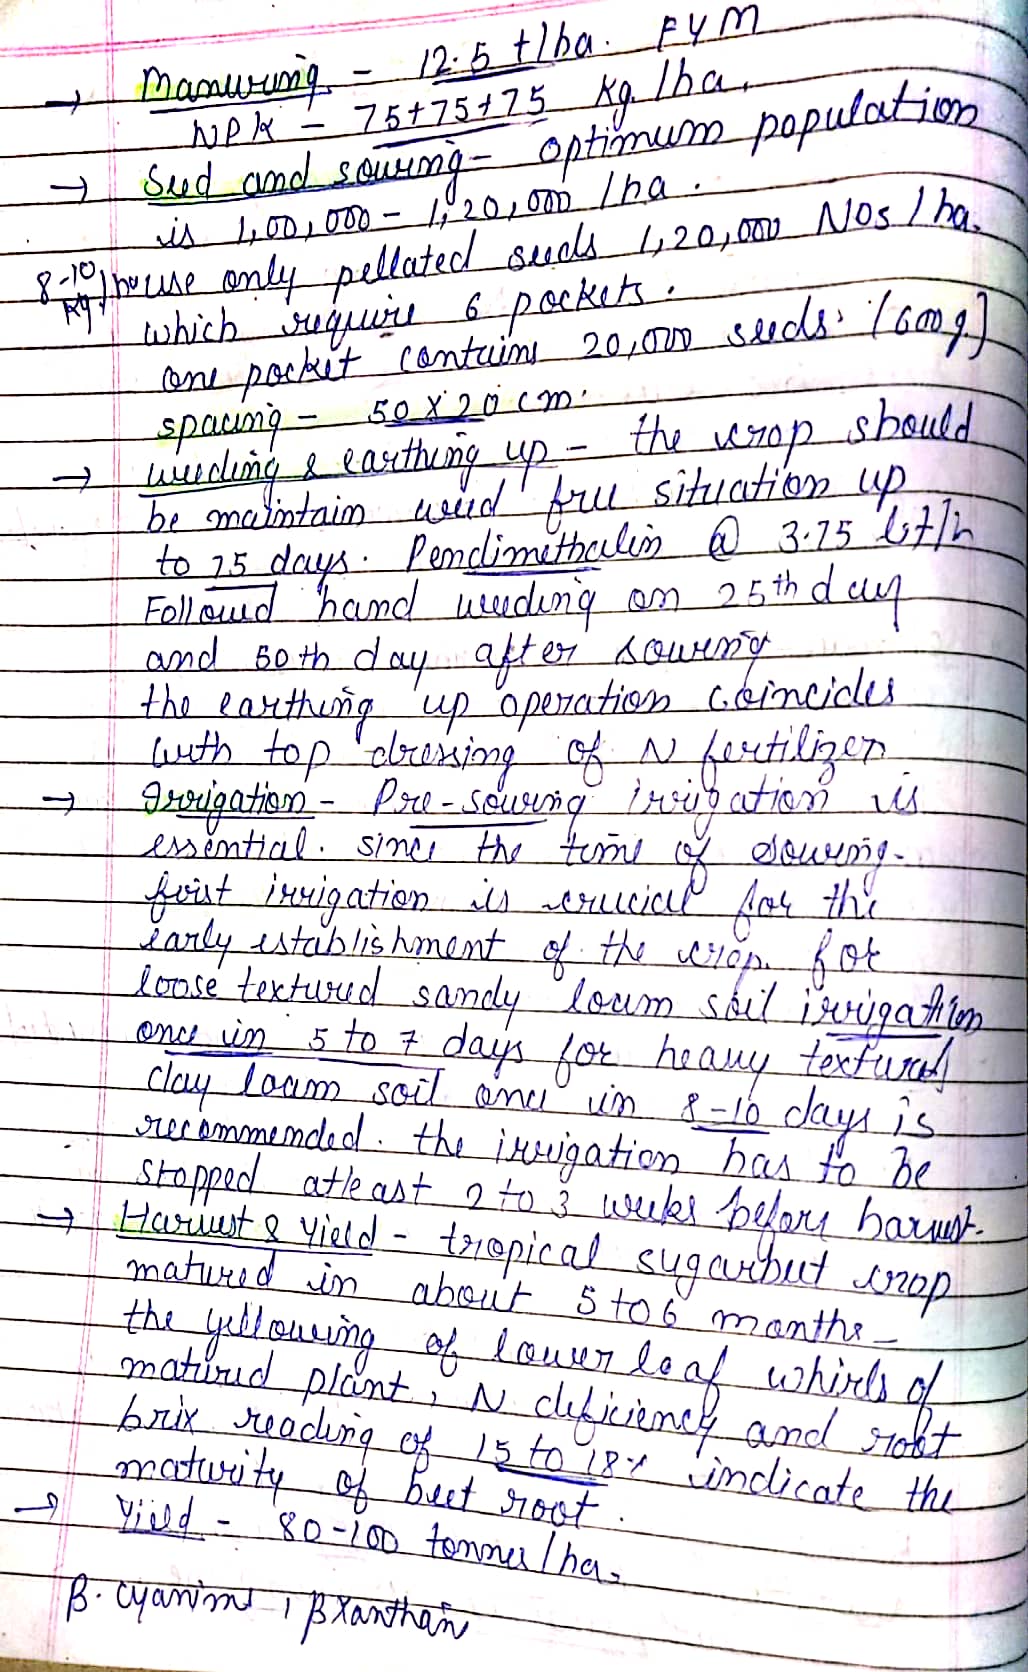 → Manuring - 12.5 t/ha. FYM
NPK - 75+75+75 Kg/ha.
→ Seed and sowing - optimum population
is 1,00,000 - 1,20,000 /ha.
8-10 kg/ha use only pellated seeds 1,20,000 NOS/ha.
which require 6 pockets.
one pocket contains 20,000 seeds. (600g)
spacing - 50 x 20 cm.
→ weeding & earthing up - the crop should
be maintain weed free situation up
to 75 days. Pendimethalin @ 3.75 lit/h
Followed hand weeding on 25th day
and 50th day after sowing
the earthing up operation coincides
with top dressing of N fertilizer
→ Irrigation - Pre-sowing irrigation is
essential. since the time of sowing.
first irrigation is crucial for the
early establishment of the crop. for
loose textured sandy loam soil irrigation
once in 5 to 7 days for heavy textured
clay loam soil once in 8-10 days is
recommended. the irrigation has to be
stopped atleast 2 to 3 weeks before harvest.
→ Harvest & Yield - tropical sugarbeet crop
matured in about 5 to 6 months -
the yellowing of lower leaf whirls of
matured plant, N deficiency and root
brix reading of 15 to 18% indicate the
maturity of beet root.
→ Yield - 80-100 tonnes/ha.
β. cyanins, β xanthan